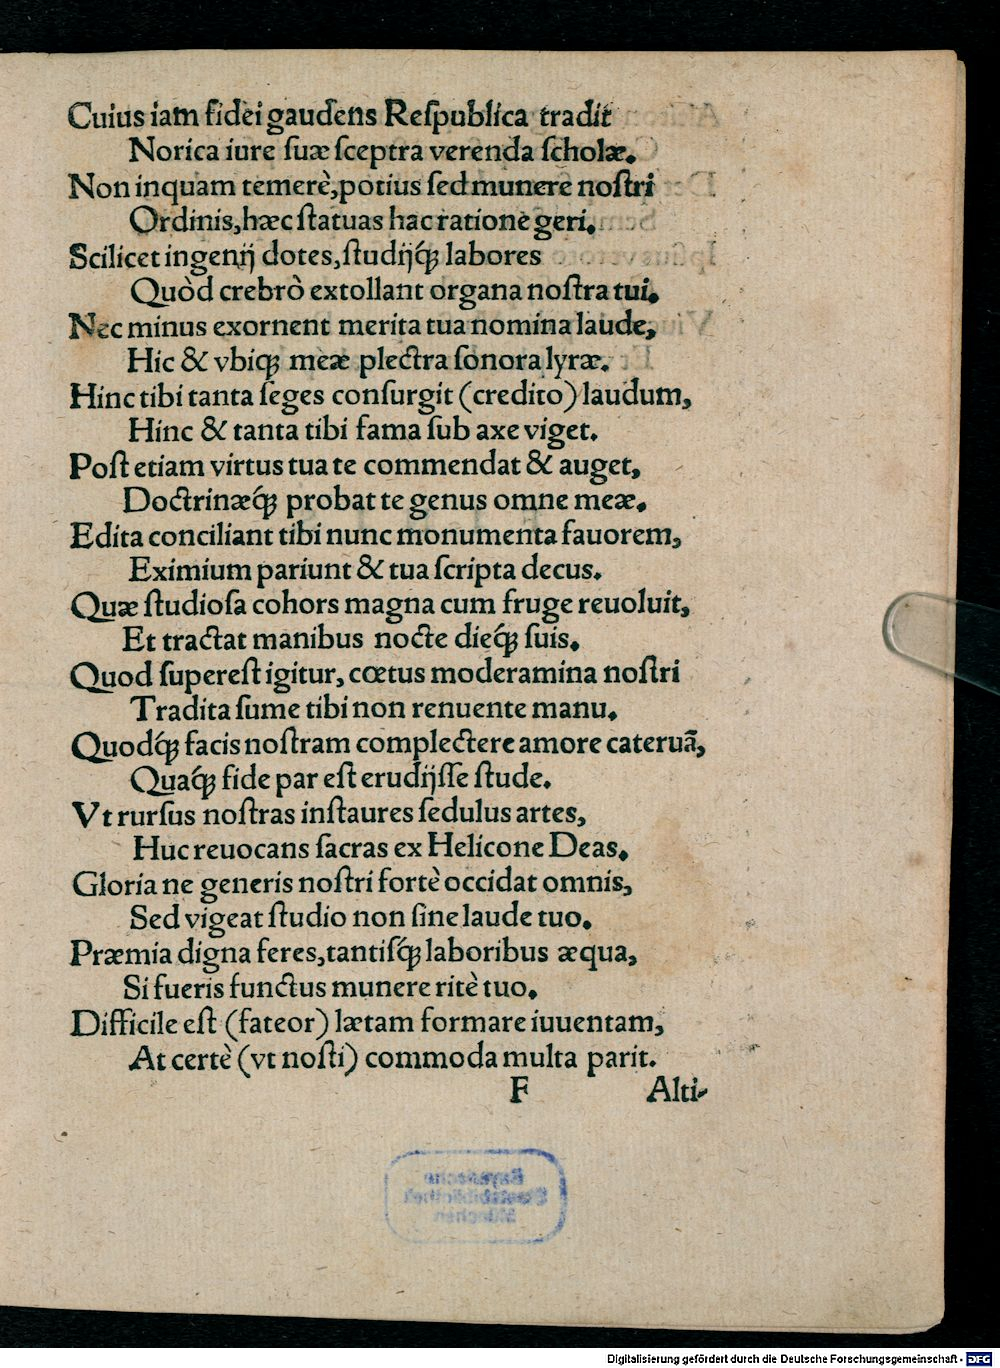 Cuius iam fidei gaudens Reſpublica tradit
Norica iure ſuæ ſceptra verenda ſcholæ.
Non inquam temerè, potius ſed munere noſtri
Ordinis, hæc ſtatuas hac ratione geri.
Scilicet ingenij dotes, ſtudijq́ꝫ labores
Quòd crebrò extollant organa noſtra tui.
Nec minus exornent merita tua nomina laude,
Hic & vbiqꝫ meæ plectra ſonora lyræ.
Hinc tibi tanta ſeges conſurgit (credito) laudum,
Hinc & tanta tibi fama ſub axe viget.
Poſt etiam virtus tua te commendat & auget,
Doctrinæq́ꝫ probat te genus omne meæ.
Edita conciliant tibi nunc monumenta fauorem,
Eximium pariunt & tua ſcripta decus.
Quæ ſtudioſa cohors magna cum fruge reuoluit,
Et tractat manibus nocte dieq́ꝫ ſuis.
Quod ſupereſt igitur, cœtus moderamina noſtri
Tradita ſume tibi non renuente manu.
Quodq́ꝫ facis noſtram complectere amore cateruã,
Quaq́ꝫ fide par eſt erudijſſe ſtude.
Vt rurſus noſtras inſtaures ſedulus artes,
Huc reuocans ſacras ex Helicone Deas.
Gloria ne generis noſtri fortè occidat omnis,
Sed vigeat ſtudio non ſine laude tuo.
Præmia digna feres, tantiſq́ꝫ laboribus æqua,
Si fueris functus munere ritè tuo.
Difficile eſt (fateor) lætam formare iuuentam,
At certè (vt noſti) commoda multa parit.
F Alti-
Bayerische
Staatsbibliothek
München
Digitalisierung gefördert durch die Deutsche Forschungsgemeinschaft - DFG